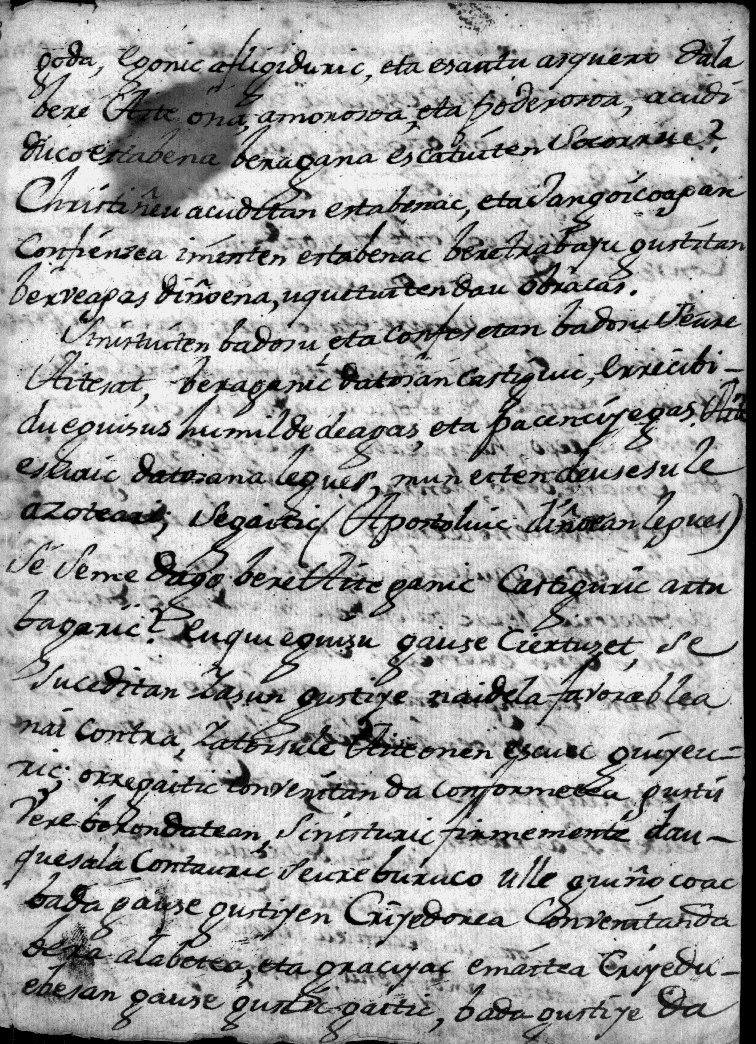 goda, egonic afligiduric, eta esautu asquero dala
bere Aite ona, amorosoa, eta poderosoa, acudi
duco estabena beragana escatuiten Socorrue?
Christiñeu acuditan estabenac, eta Jangoicoagan
Confienzea iminten estabenac bere trabaju gustitan
berveagas diñoena, uquetuiten dau obracas.
Sinistuiten badozu, eta confesetan badozu Seure
Aitesat, beraganic datosan castiguic, Errecibi-
du eguizus humildadeagas, eta pacenciyegas, Aite
escuic datosana legues, mun eiten deusesule
azoteari, Segaitic (Apostoluic diñoean legues)
Se Seme dago bere Aite ganic Castiguric artu
bagaric? Euqui eguizu gause Ciertuzet, Se
Suceditan Zasun gustiye naidela favorablea
nai contra, Zatorsule Aite onen escuec guiyeu-
ric; orregaitic convenitan da Conformetea gusti
vere borondatean, Sinisturic firmemente dau-
quesala Contauric Seure buruco ulle guiñocoac
bada gause gustiyen Criyedorea Convenitan da
bera alabetea, eta graciyac emaitea Criyedu-
ebesan gause gustiic gaitic, bada gustiye da